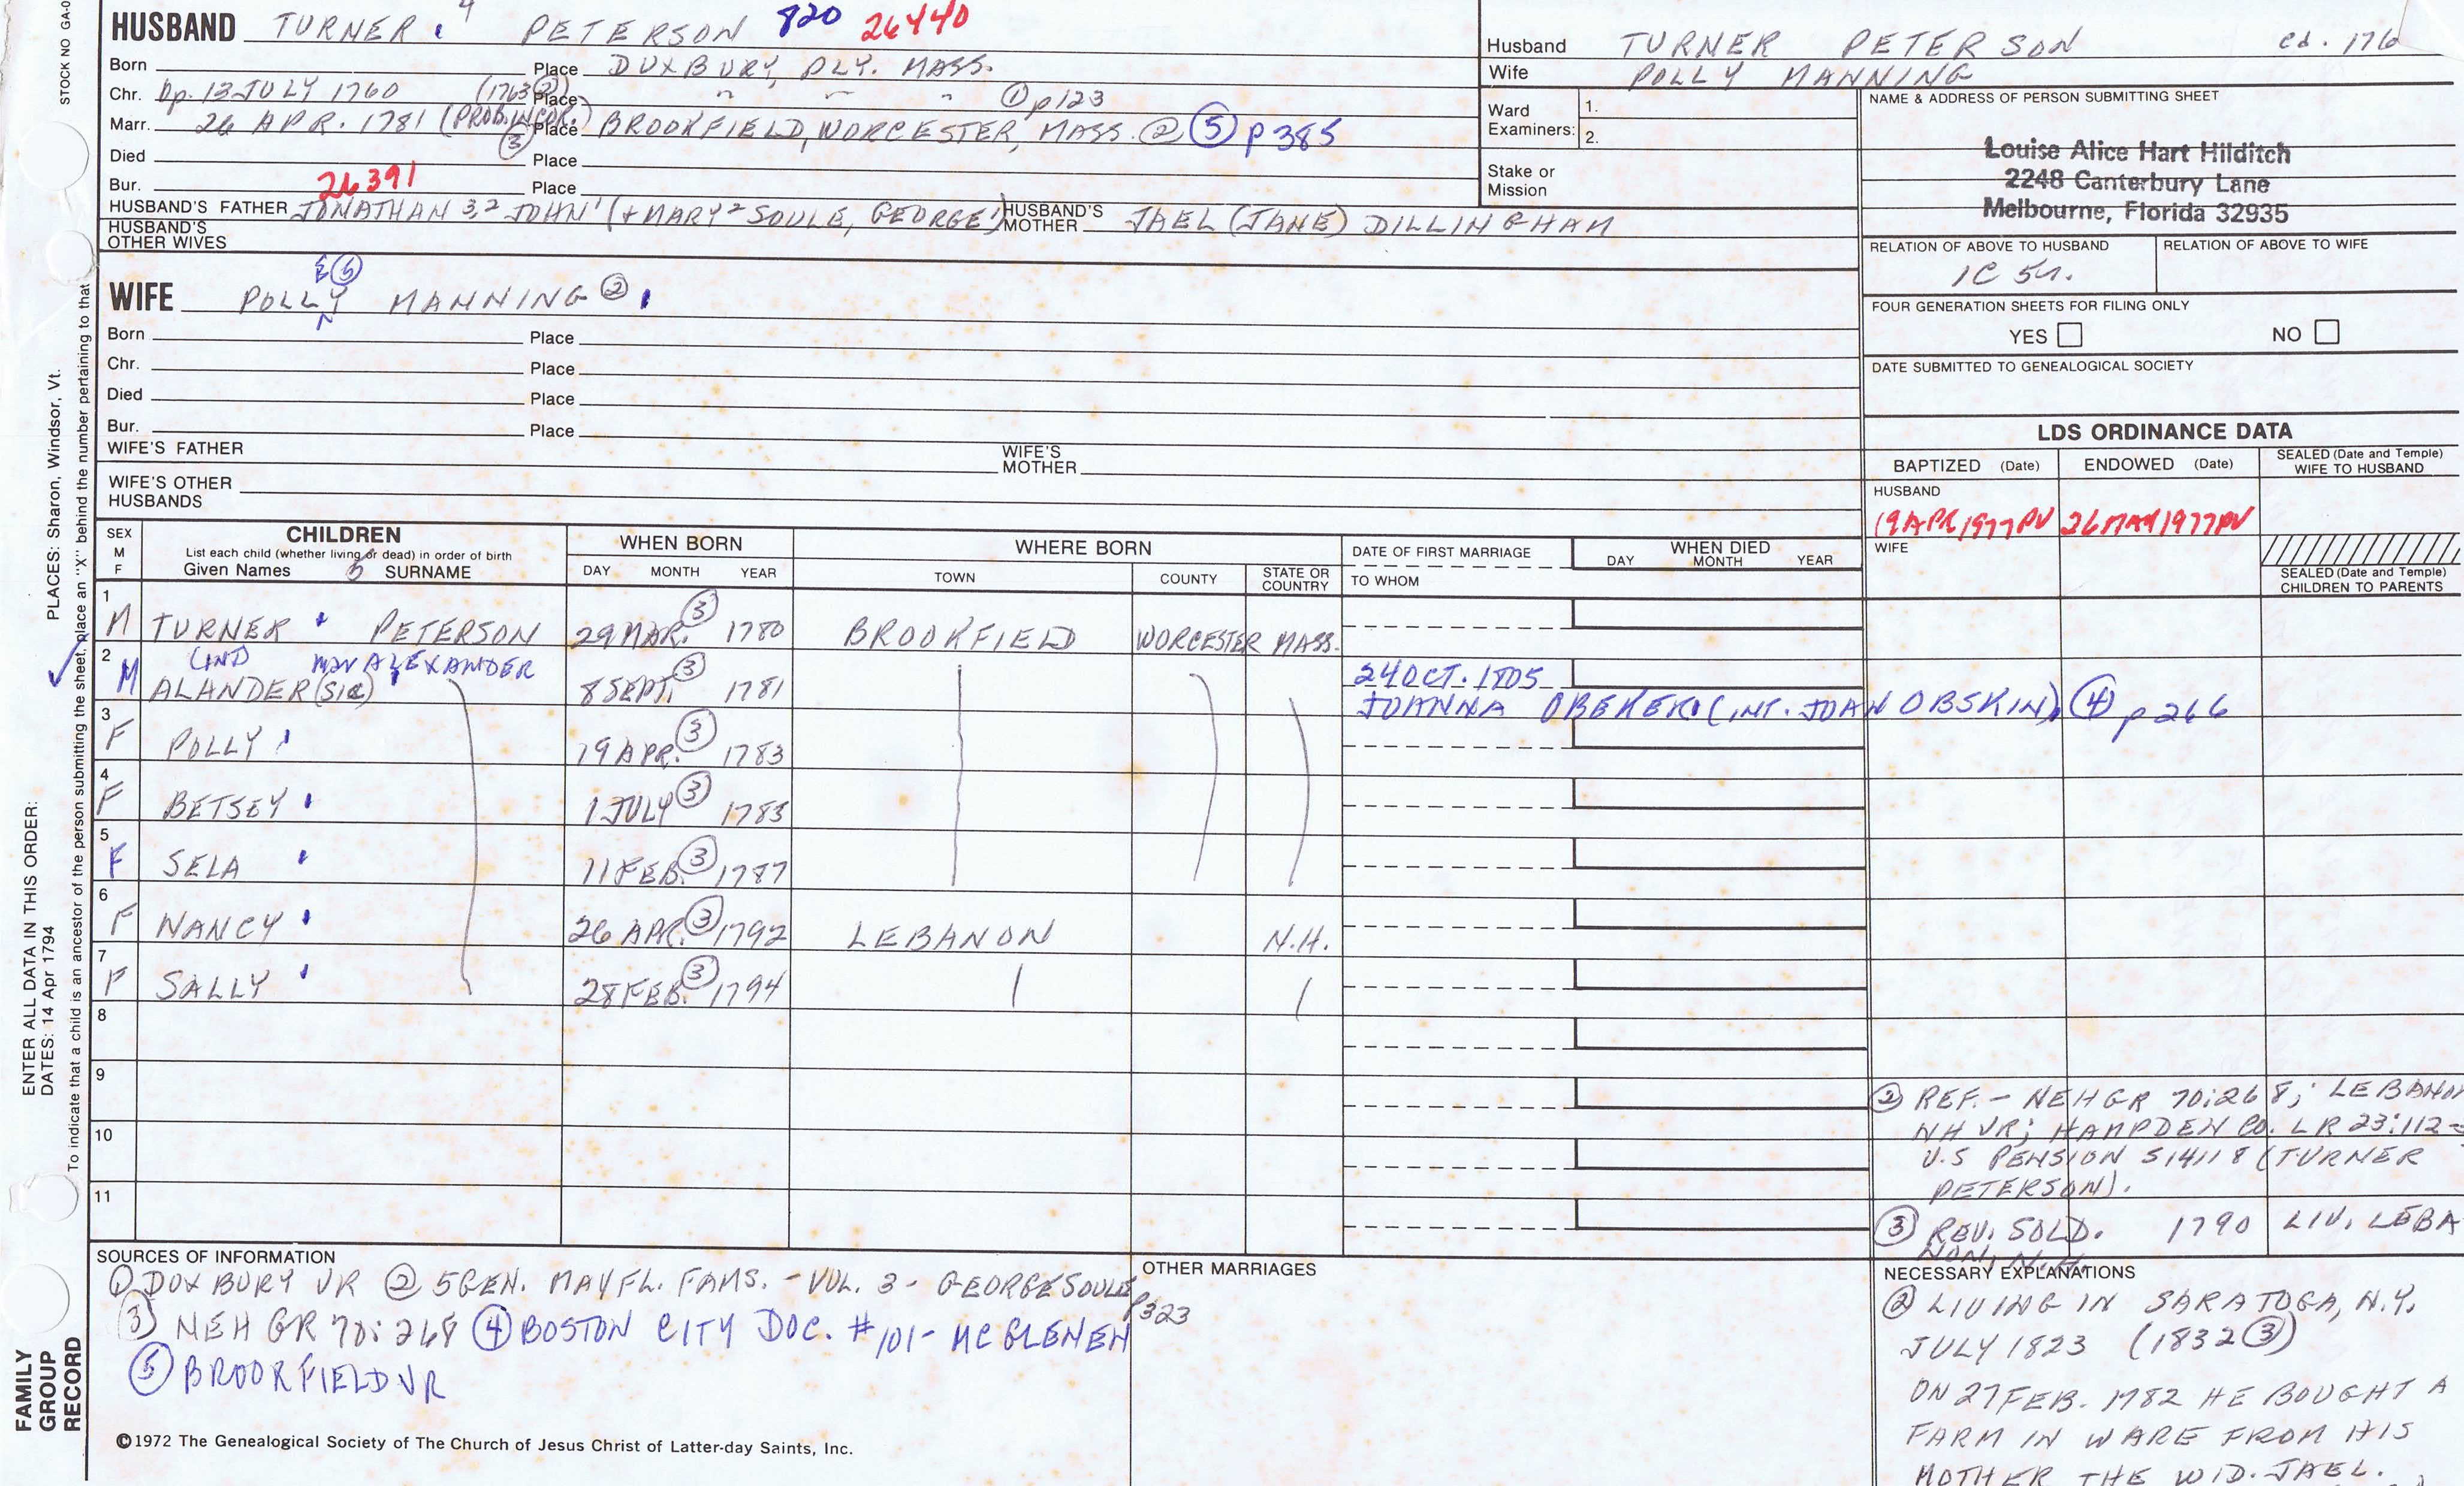 STOCK NO GA-0
HUSBAND TURNER 4 PETERSON 820 26440
Born Place DUXBURY, PLY. MASS.
Chr. bp. 13 JULY 1760 (1763 ②) Place " " " ① p 123
Marr. 26 APR. 1781 (PROB. INCOR.) ③ Place BROOKFIELD, WORCESTER, MASS. ② ⑤ p 385
Died Place
Bur. 26391 Place
HUSBAND'S FATHER JONATHAN 3,2 JOHN 1 (+ MARY 2 SOULE, GEORGE 1) HUSBAND'S MOTHER JAEL (JANE) DILLINGHAM
HUSBAND'S OTHER WIVES
Husband TURNER PETERSON cd. 176
Wife POLLY MANNING
Ward Examiners: 1.
2.
Stake or Mission
NAME & ADDRESS OF PERSON SUBMITTING SHEET
Louise Alice Hart Hilditch
2248 Canterbury Lane
Melbourne, Florida 32935
RELATION OF ABOVE TO HUSBAND RELATION OF ABOVE TO WIFE
1C 5r.
FOUR GENERATION SHEETS FOR FILING ONLY
YES NO
DATE SUBMITTED TO GENEALOGICAL SOCIETY
WIFE POLLY MANNING ②
Born Place
Chr. Place
Died Place
Bur. Place
WIFE'S FATHER WIFE'S MOTHER
WIFE'S OTHER HUSBANDS
LDS ORDINANCE DATA
BAPTIZED (Date) ENDOWED (Date) SEALED (Date and Temple) WIFE TO HUSBAND
HUSBAND
19 APR 1977 PV 26 MAY 1977 PV
WIFE
SEALED (Date and Temple) CHILDREN TO PARENTS
SEX M F CHILDREN WHEN BORN WHERE BORN DATE OF FIRST MARRIAGE WHEN DIED
List each child (whether living or dead) in order of birth
Given Names 5 SURNAME DAY MONTH YEAR TOWN COUNTY STATE OR COUNTRY TO WHOM DAY MONTH YEAR
1 M TURNER PETERSON 29 MAR. ③ 1780 BROOKFIELD WORCESTER MASS.
2 M ALANDER (SIC) ALEXANDER 8 SEPT. ③ 1781 24 OCT. 1805
JOANNA OBEKER (INT. JOAN OBSKIN) ④ p 266
3 F POLLY 19 APR. ③ 1783
4 F BETSEY 1 JULY ③ 1783
5 F SELA 11 FEB. ③ 1787
6 F NANCY 26 APR. ③ 1792 LEBANON N.H.
7 F SALLY 28 FEB. ③ 1794
8
9
10
11
② REF. - NEHGR 70:268; LEBANON
NH VR; HAMPDEN CO. LR 23:112
U.S PENSION S14118 (TURNER
PETERSON).
③ REV. SOLD. 1790 LIV. LEBA
NON, N.H.
SOURCES OF INFORMATION
① DUXBURY VR ② 5 GEN. MAYFL. FAMS. - VOL. 3 - GEORGE SOULE p323
③ NEHGR 70:268 ④ BOSTON CITY DOC. #101 - MCGLENEN
⑤ BROOKFIELD VR
OTHER MARRIAGES
NECESSARY EXPLANATIONS
② LIVING IN SARATOGA, N.Y.
JULY 1823 (1832 ③)
ON 27 FEB. 1782 HE BOUGHT A
FARM IN WARE FROM HIS
MOTHER THE WID. JAEL.
©1972 The Genealogical Society of The Church of Jesus Christ of Latter-day Saints, Inc.
FAMILY GROUP RECORD
ENTER ALL DATA IN THIS ORDER:
DATES: 14 Apr 1794 PLACES: Sharon, Windsor, Vt.
To indicate that a child is an ancestor of the person submitting the sheet, place an "X" behind the number pertaining to that